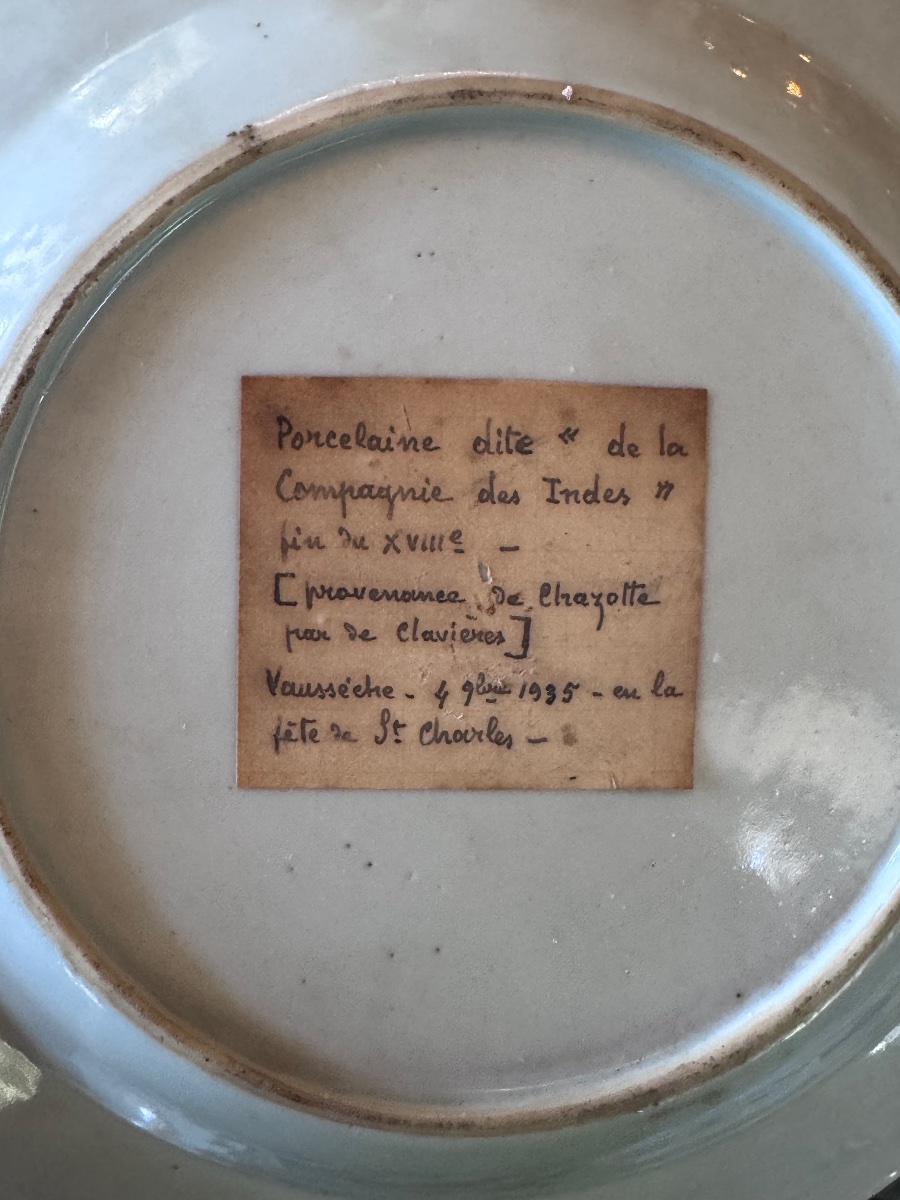 Porcelaine dite « de la
Compagnie des Indes »
fin du XVIIIe –
[provenance de Chazotte
par de Clavières]
Vaussèche - 4 9bre 1935 - en la
fête de St Charles –